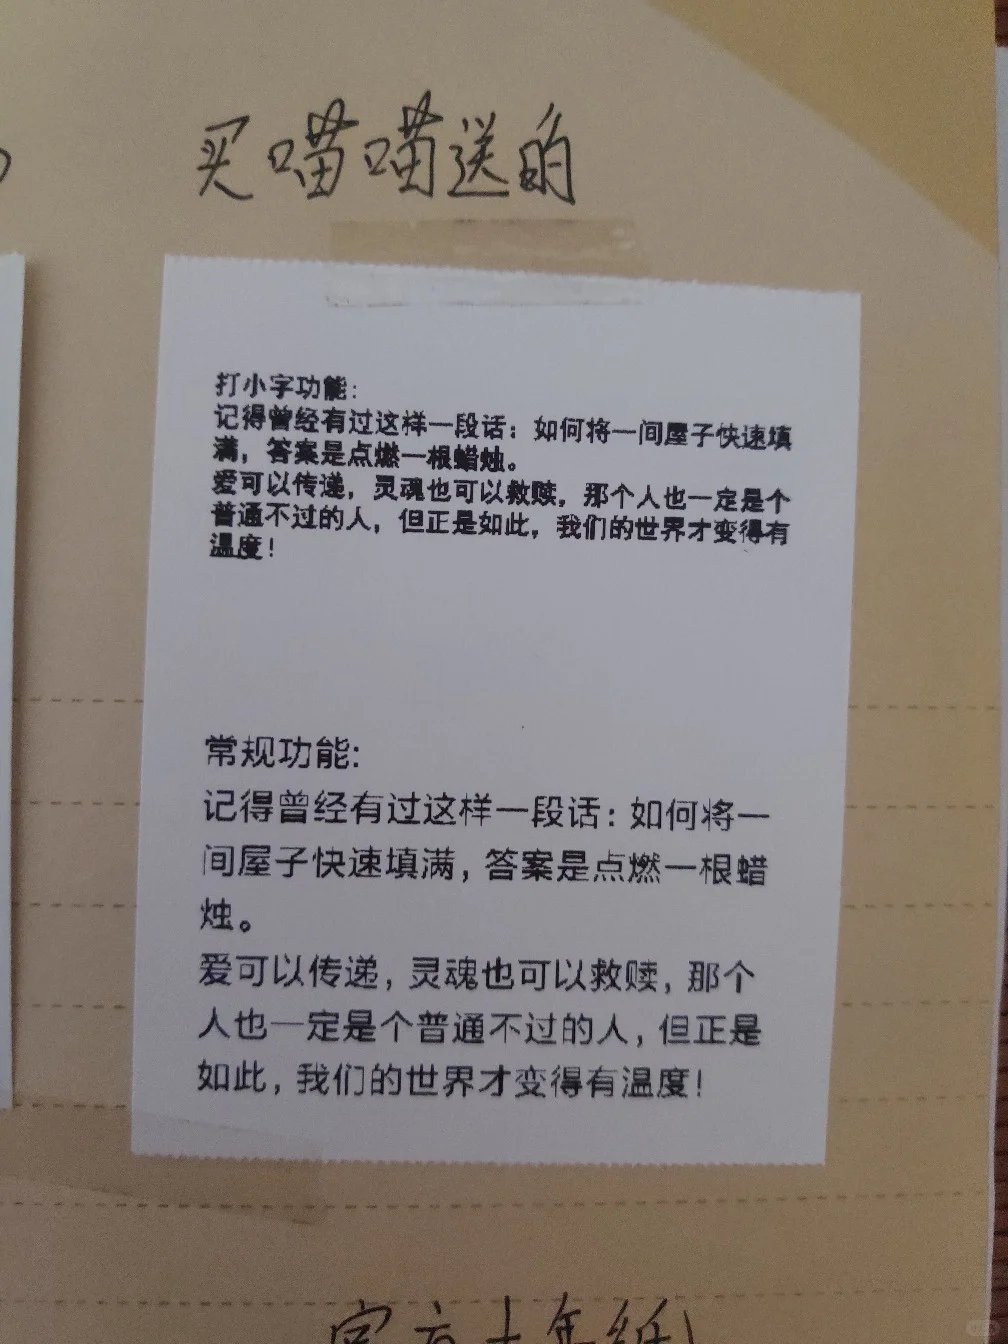 买喵喵送的
打小字功能：
记得曾经有过这样一段话：如何将一间屋子快速填
满，答案是点燃一根蜡烛。
爱可以传递，灵魂也可以救赎，那个人也一定是个
普通不过的人，但正是如此，我们的世界才变得有
温度！
常规功能：
记得曾经有过这样一段话：如何将一
间屋子快速填满，答案是点燃一根蜡
烛。
爱可以传递，灵魂也可以救赎，那个
人也一定是个普通不过的人，但正是
如此，我们的世界才变得有温度！
官方十年纸